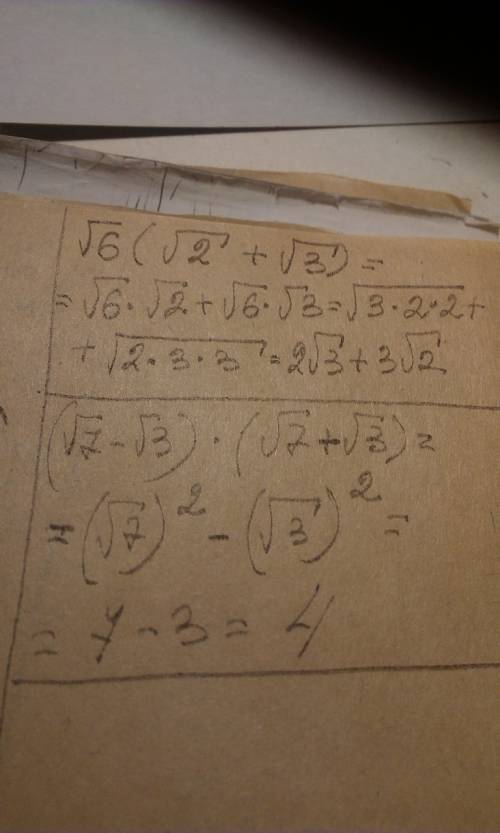 √6 ( √2 + √3 ) =
= √6 · √2 + √6 · √3 = √3 · 2 · 2 +
+ √2 · 3 · 3 = 2√3 + 3√2
(√7 - √3) · (√7 + √3) =
= (√7)² - (√3)² =
= 7 - 3 = 4